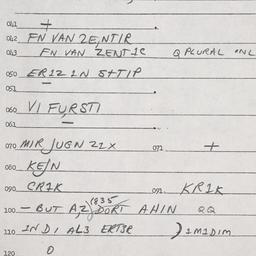 041 +
042 FN VAN ZENTIR
043 FN VAN ZENT1C Q PLURAL ONL
050 ER1Z 1N S++IP
051
060 VI FURSTI
061
070 MIR JUGN 21X 071 +
080 KE/N
090 CR1K 091 KR1K
100 — BUT A,Z (835 DORT AHIN QQ
110 1N D1 AL3 ERTBR ) 1M1D1M
120 0